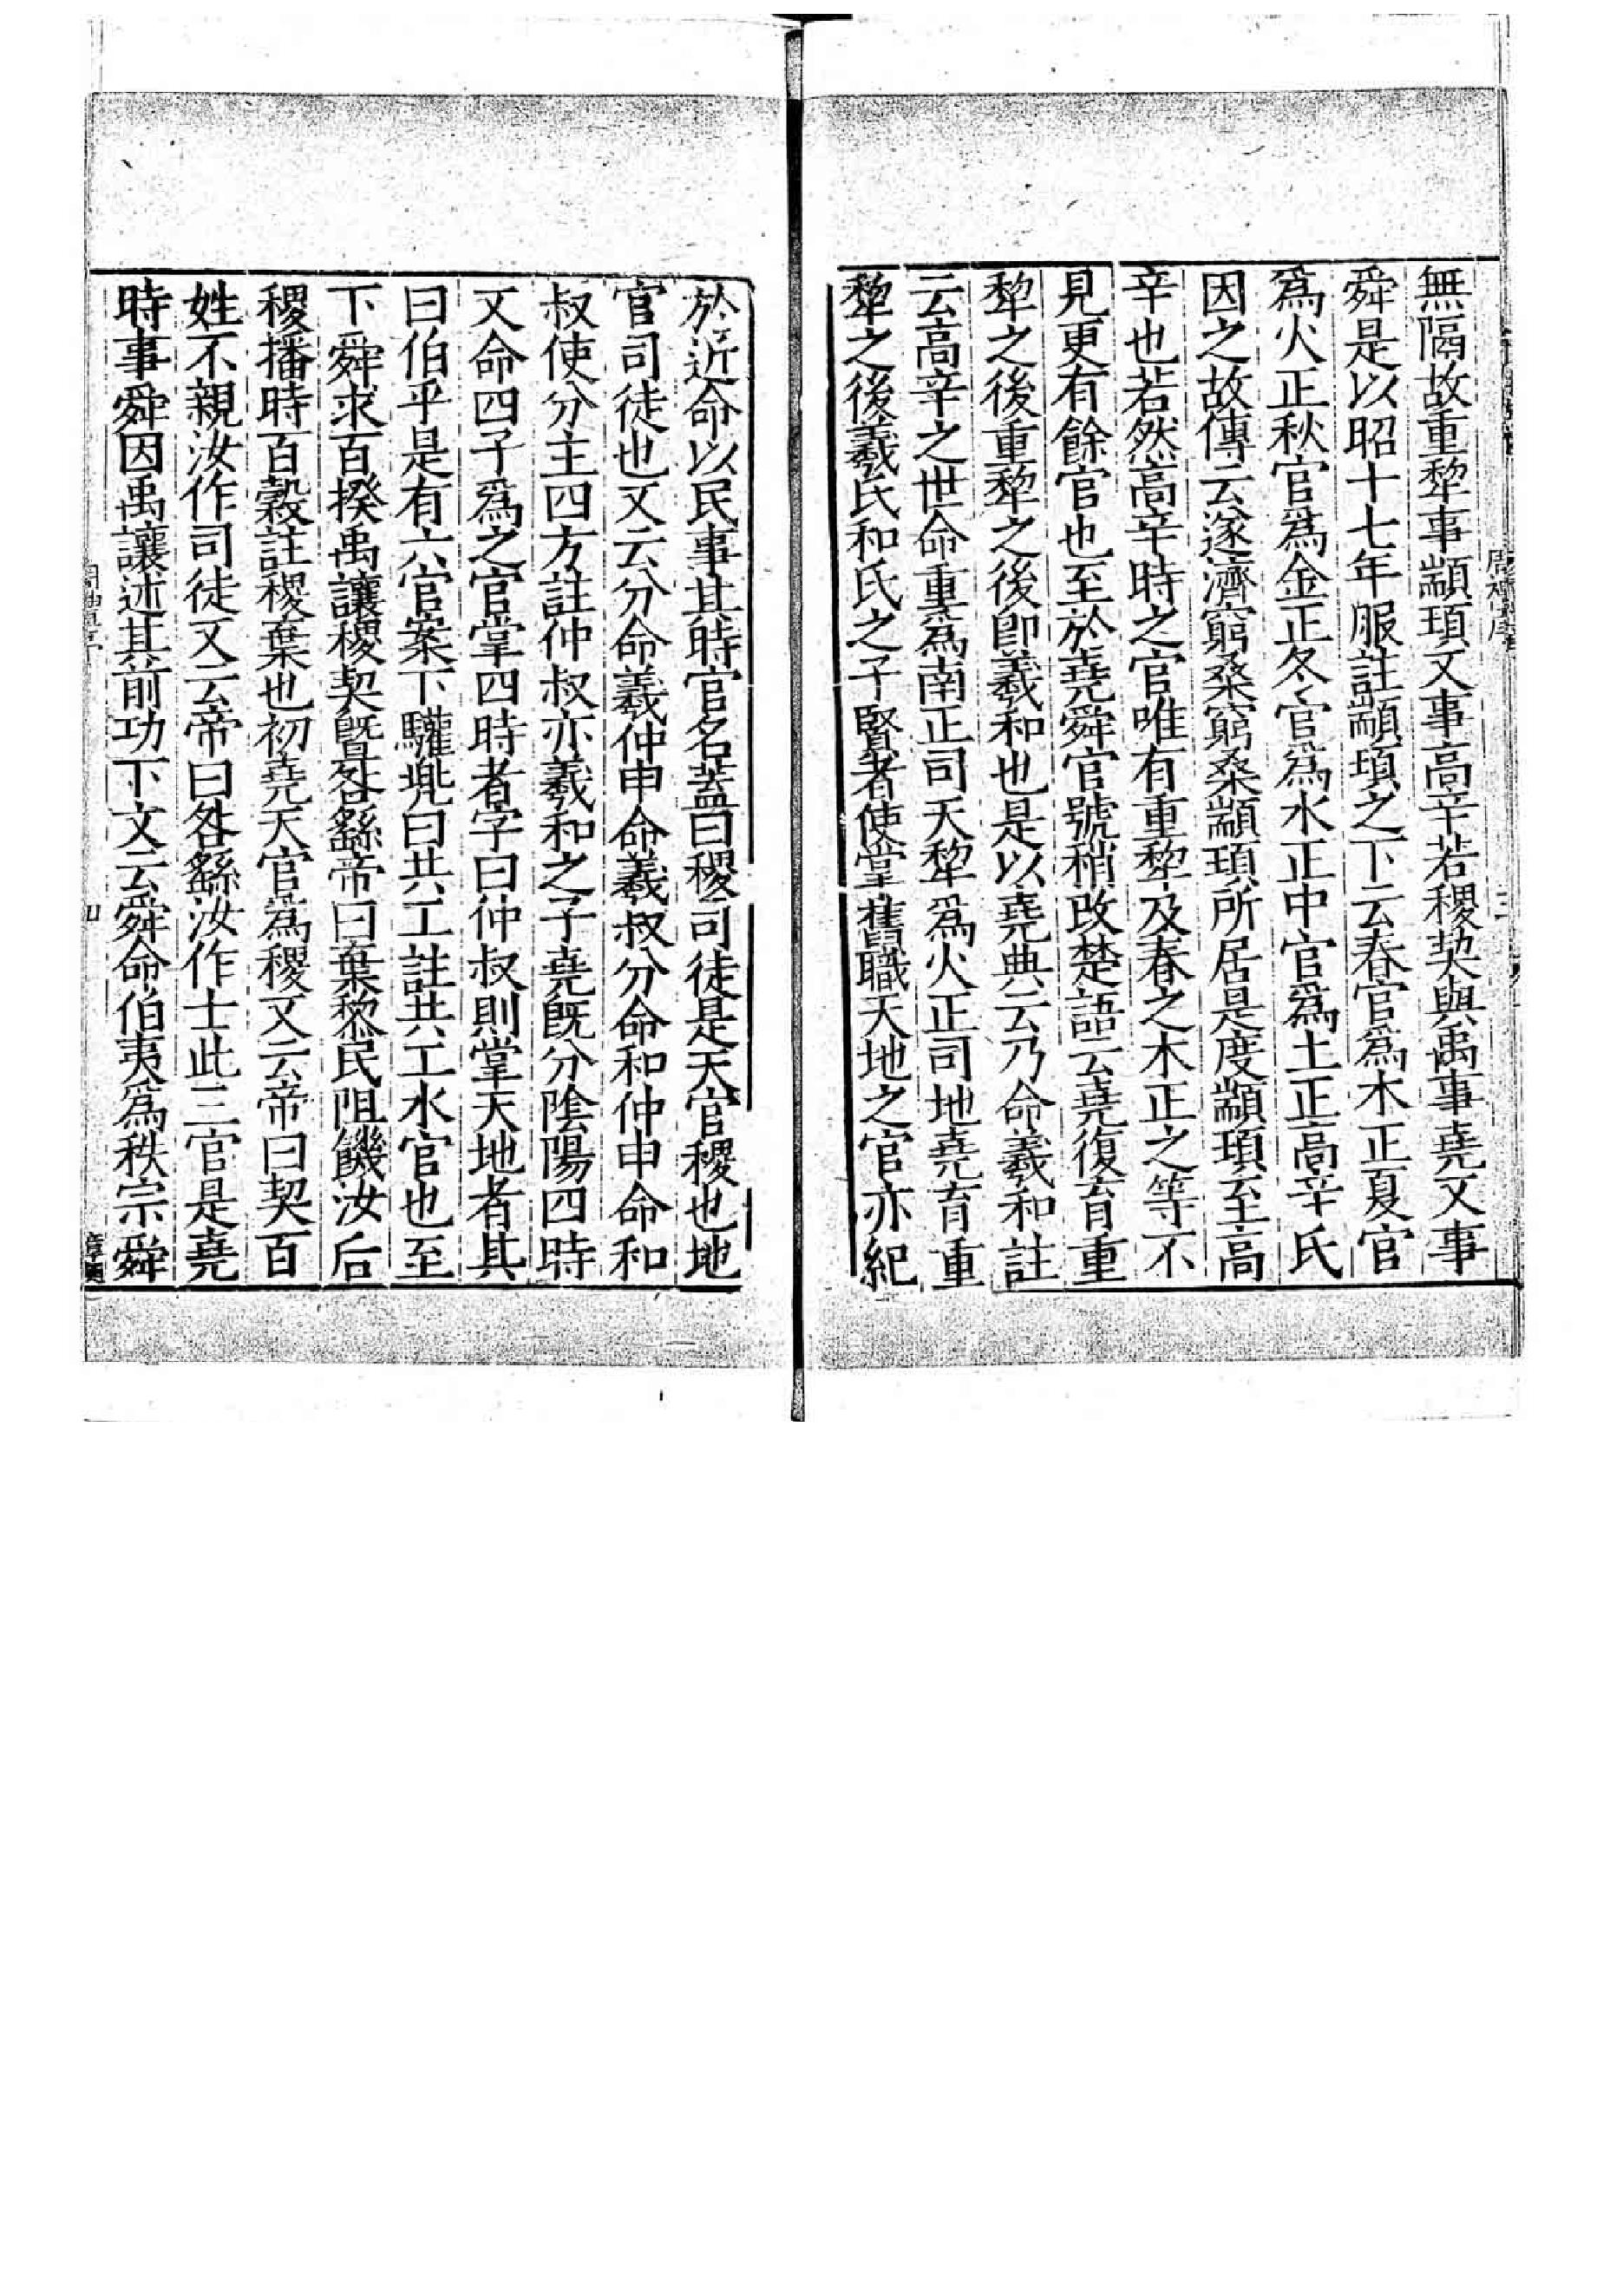 無隔故重犂事顓頊又事高辛若稷契與禹事堯又事
舜是以昭十七年服註顓頊之下云春官爲木正夏官
爲火正秋官爲金正冬官爲水正中官爲土正高辛氏
因之故傳云遂濟窮桑窮桑顓頊所居是度顓頊至高
辛也若然高辛時之官唯有重犂及春之木正之等不
見更有餘官也至於堯舜官號稍改楚語云堯復育重
犂之後重犂之後卽羲和也是以堯典云乃命羲和註
云高辛之世命重爲南正司天犂爲火正司地堯育重
犂之後羲氏和氏之子賢者使掌舊職天地之官亦紀
周禮序
三
於近命以民事其時官名蓋曰稷司徒是天官稷也地
官司徒也又云分命羲仲申命羲叔分命和仲申命和
叔使分主四方註仲叔亦羲和之子堯既分陰陽四時
又命四子爲之官掌四時者字曰仲叔則掌天地者其
曰伯乎是有六官案下驩兠曰共工註共工水官也至
下舜求百揆禹讓稷契曁咎繇帝曰棄黎民阻饑汝后
稷播時百穀註稷棄也初堯天官爲稷又云帝曰契百
姓不親汝作司徒又云帝曰咎繇汝作士此三官是堯
時事舜因禹讓述其前功下文云舜命伯夷爲秩宗舜